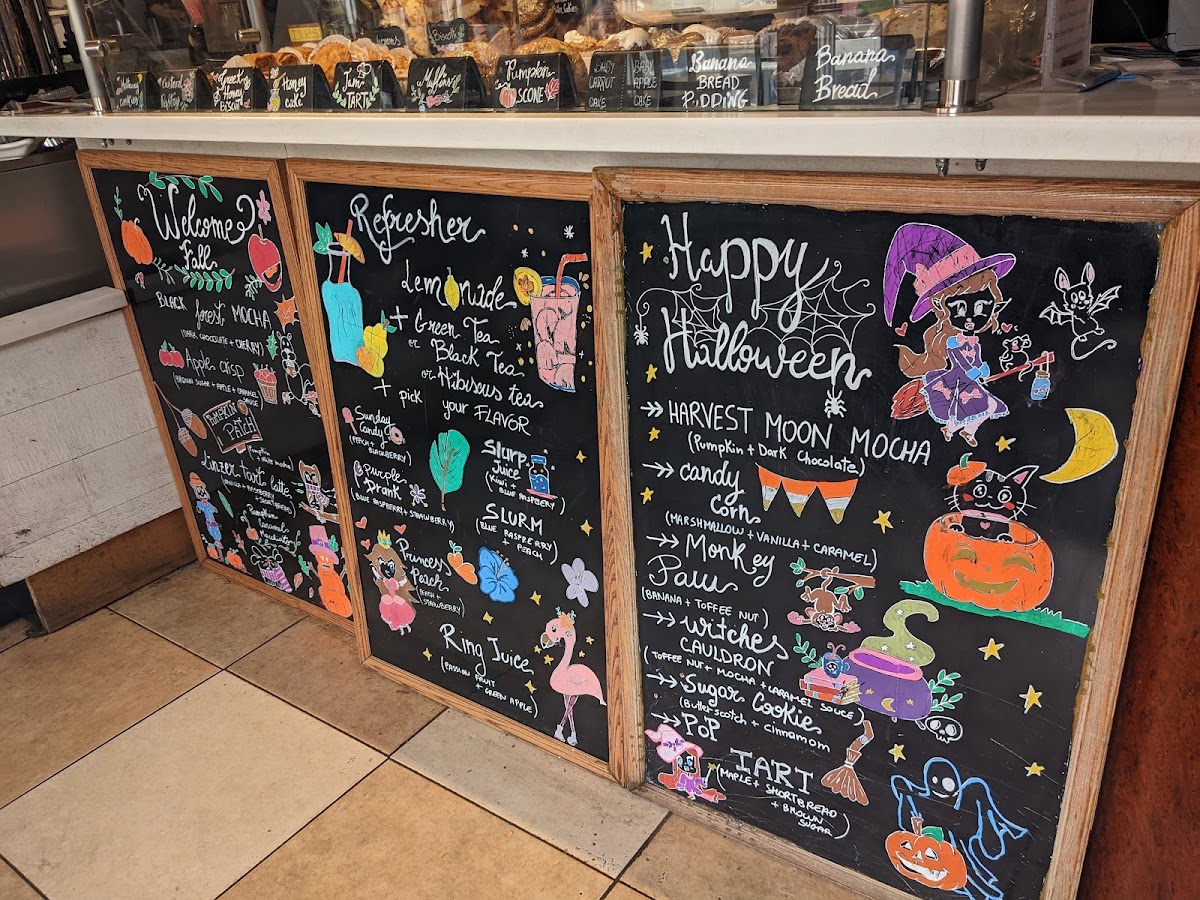 Biscotti
Honey
CAKE
JAM
TART
Muffins
Pumpkin
SCONE
BABY
CARROT
CAKE
BABY
APPLE
CAKE
Banana
BREAD
PUDDING
Banana
Bread
Welcome
Fall
BLACK
forest MOCHA
(DARK CHOCOLATE + CHERRY)
Apple crisp
(BROWN SUGAR + APPLE + CARAMEL
SAUCE)
PUMPKIN
PATCH
Linzer tart latte
(VANILLA + RASPBERRY
+ SHORTBREAD)
Pumpkin
Caramel
Macchiato
Refresher
Lemonade
+ Green Tea
or Black Tea
or Hibiscus tea
+ pick your FLAVOR
Sunday
Candy
(PEACH +
BLACKBERRY)
Purple
Drank
(BLUE RASPBERRY + STRAWBERRY)
Slurp
Juice
(Kiwi +
BLUE RASPBERY)
SLURM
(BLUE RASPBERRY
+ PEACH)
Princess
Peach
(PEACH +
STRAWBERRY)
Ring Juice
(PASSION FRUIT
+ GREEN APPLE)
Happy
Halloween
HARVEST MOON MOCHA
(Pumpkin + Dark Chocolate)
candy
Corn
(MARSHMALLOW + VANILLA + CARAMEL)
Monkey
Paw
(BANANA + TOFFEE NUT)
witches
CAULDRON
(TOFFEE NUT + MOCHA + CARAMEL SAUCE)
Sugar Cookie
(Butterscotch + cinnamom
PoP
TART
(MAPLE + SHORTBREAD
+ BROWN
SUGAR)